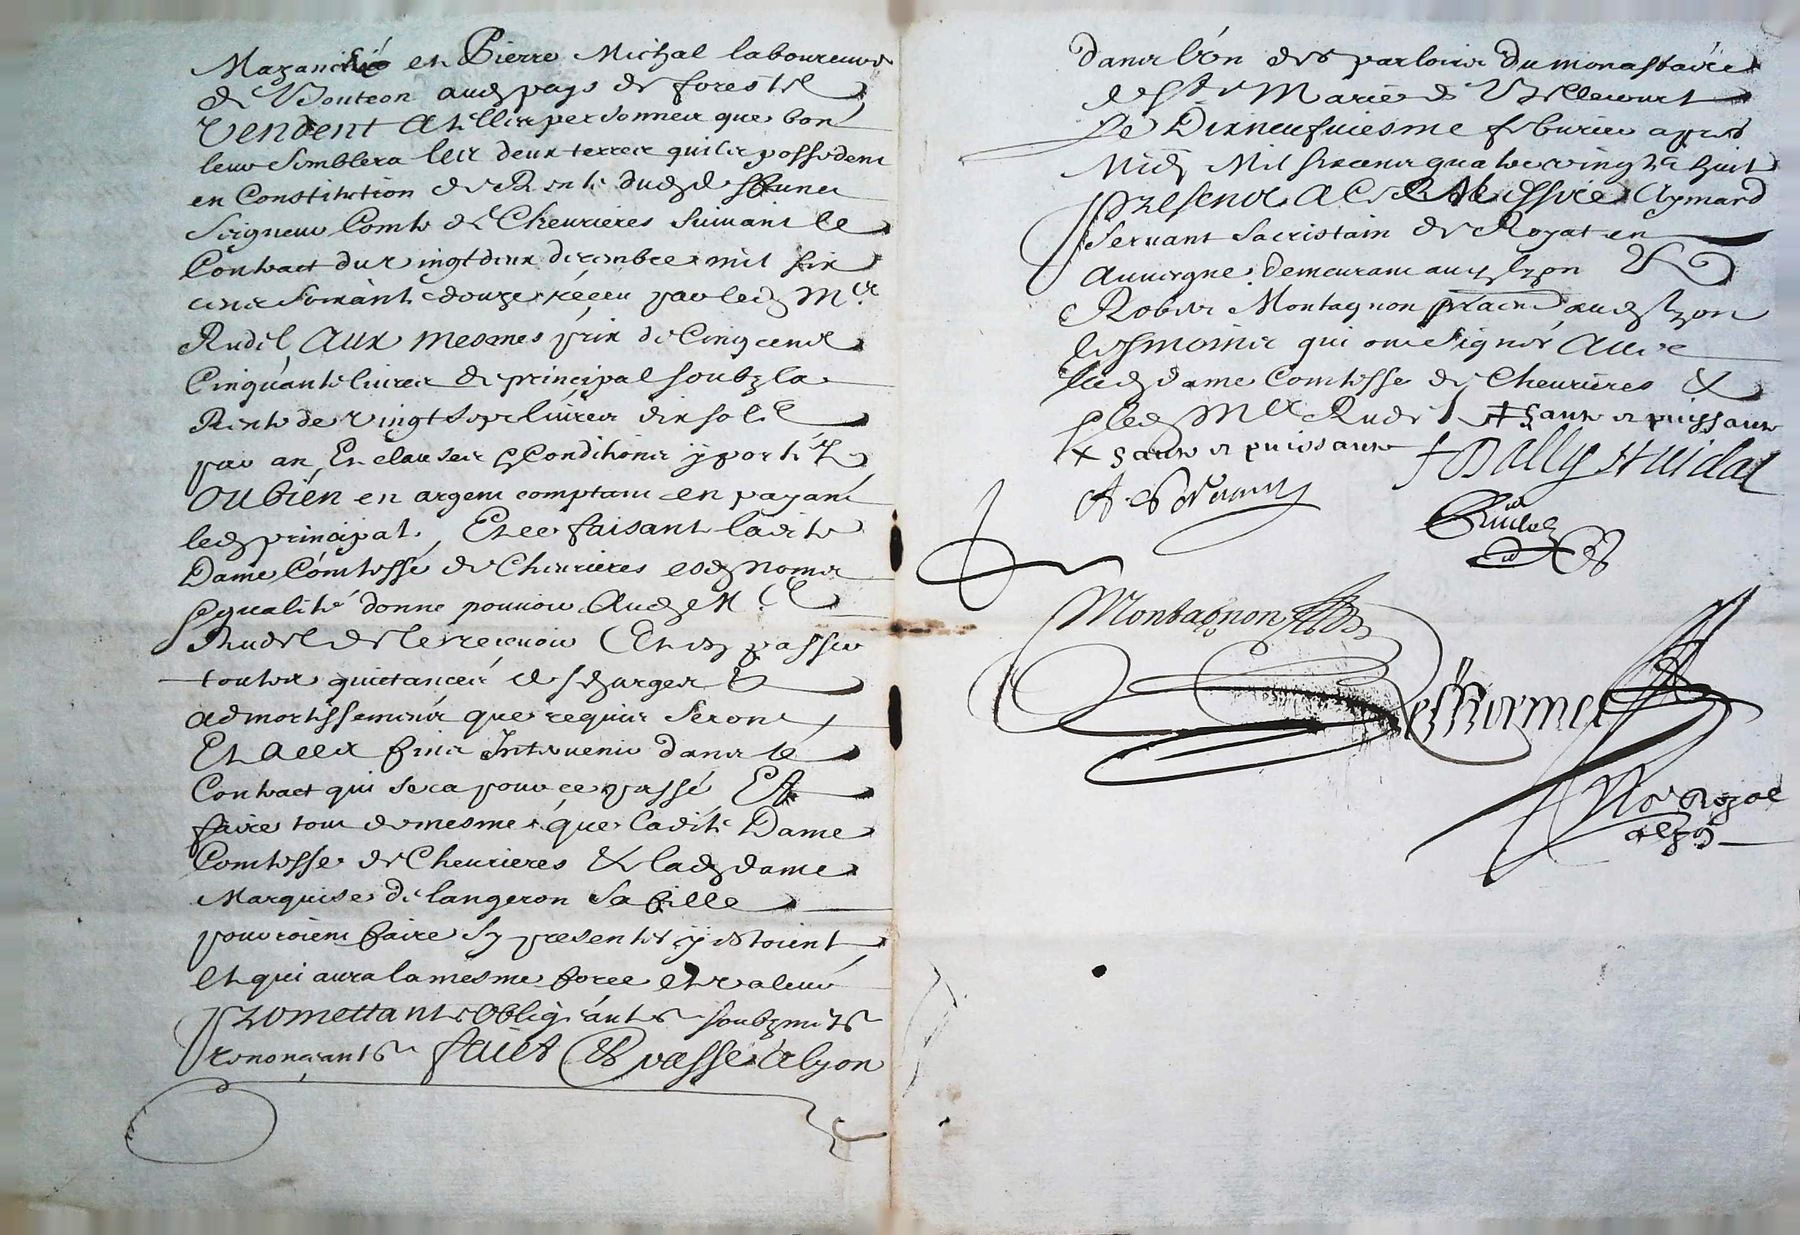 et Pierre Michal laboureurs
de Bouteon aud pays de forests
vendent a telles personnes que bon
leur semblera les deux terres quils possedent
en Constitution de Rente dud
Seigneur Comte de Chevrieres suivant le
Contract du vingt deux decembre mil six
cens soixante douze receu par led Mr
Rudel aux mesmes prix de Cinq cens
Cinquante livres de principal soubz la
Rente de vingt sept livres dix solz
par an, Et clauses & Conditions y portéez
ou bien en argent comptant en payant
led principal. Et ce faisant ladite
Dame Comtesse de Chevrieres esd noms
& qualité donne pouvoir Aud Mr
Rudel de le recevoir Et en passer
toutes quictances descharges &
admortissemens que requis seront
Et a ces fins Intervenir dans le
Contract qui sera pour ce passé Et
faire tout de mesme que ladite Dame
Comtesse de Chevrieres & lad dame
Marquise de langeron sa fille
pourroient faire sy presentes y estoient
et qui aura la mesme force et valeur
promettants obligeants soubzmets
renonçants fait & passé a lyon
dans l'un des parloirs du monastaire
de Ste Marie de Bellecourt
Le Dixneufviesme febvrier apres
Midy Mil six cens quatre vingtz huit
presence a ce de Messire Aymard
Servant sacristain de Royat en
Auvergne demeurant aud lyon &
Robert Montagnon aud lyon
tesmoins qui ont signé avec
lad dame Comtesse de Chevrieres &
led Mr Rudel + haute et puissante
+ haute et puissante
Servant
Rudel
Montagnon
Nore Royal